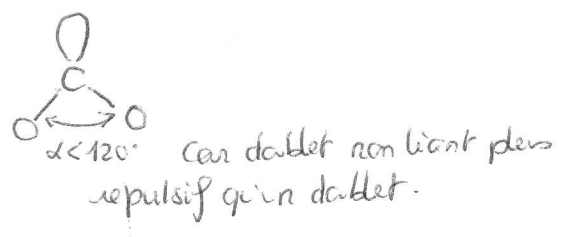 C
O O
α<120° Car doublet non liant plus
repulsif qu'un doublet.